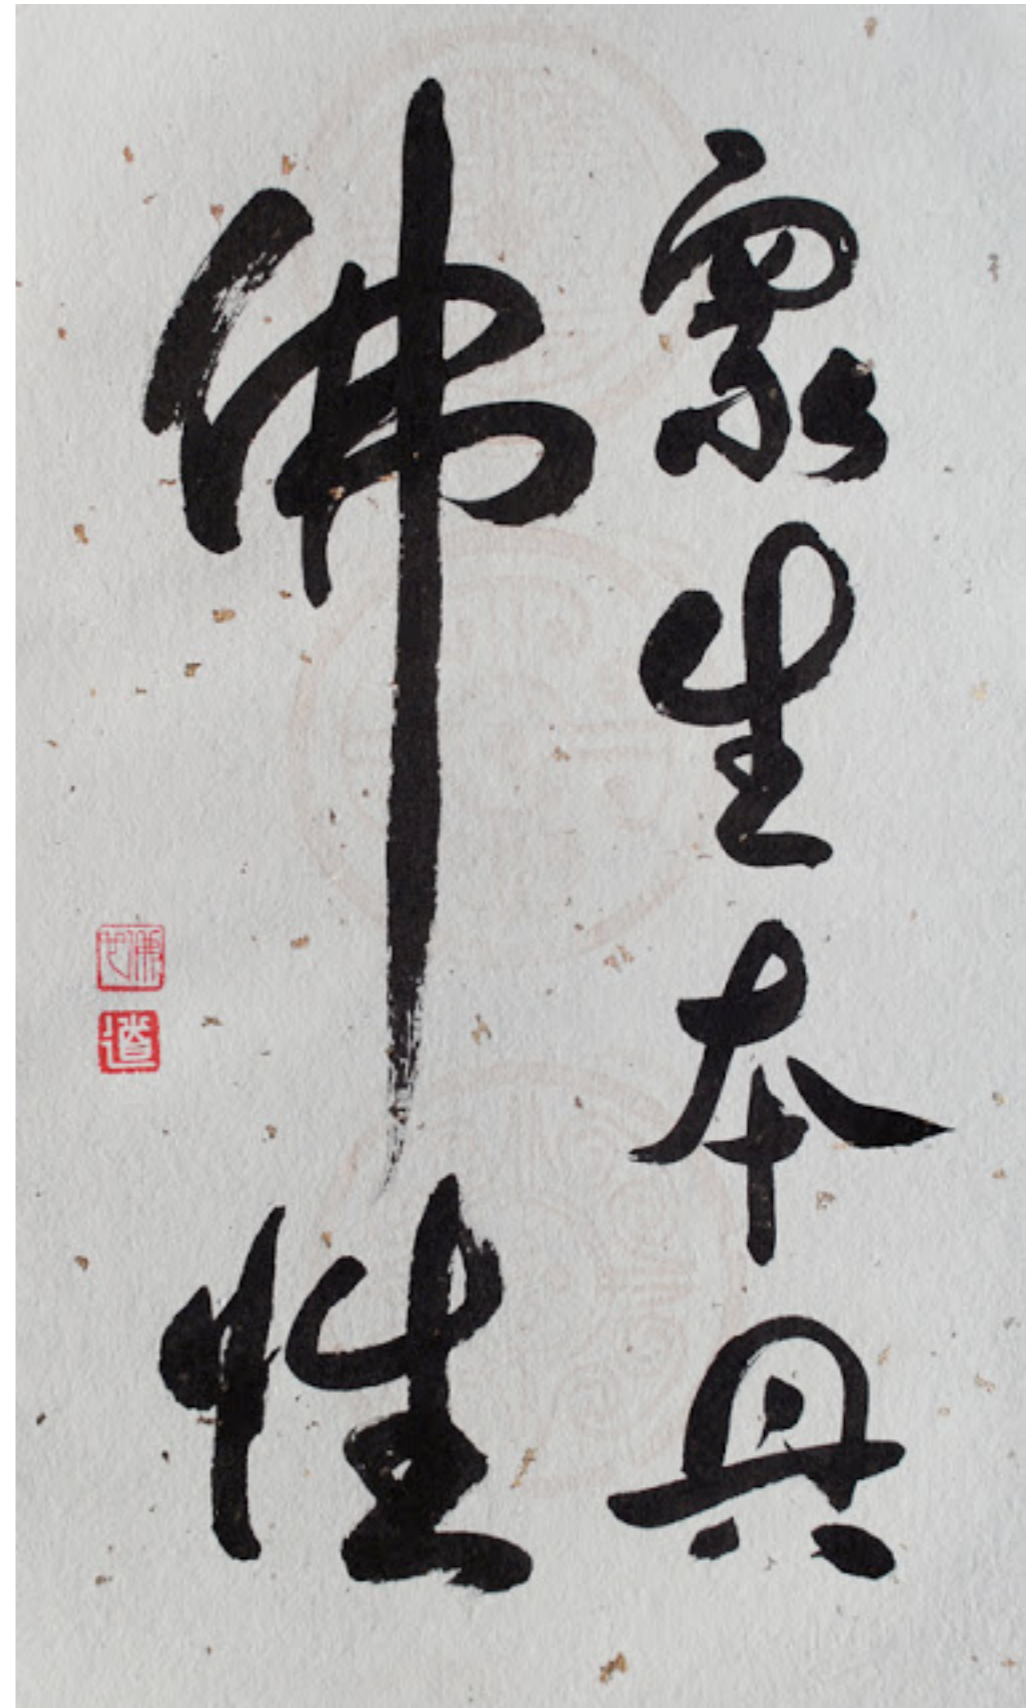 眾生本具
佛性